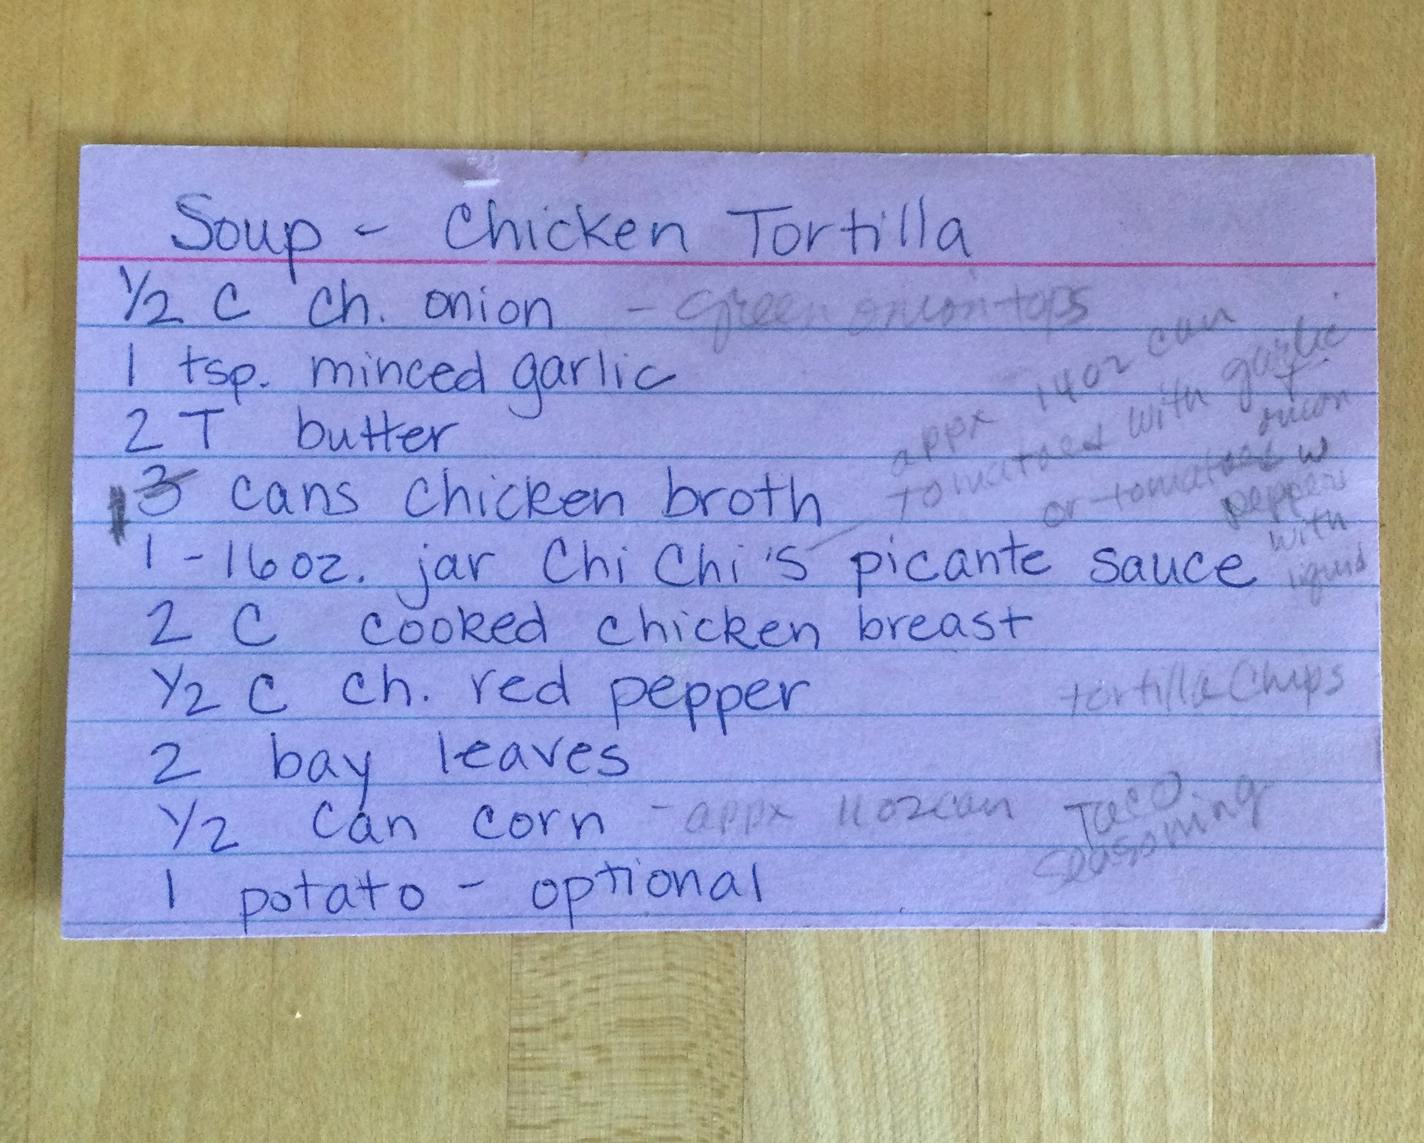 Soup - Chicken Tortilla
1/2 C ch. onion - green onion tops
1 tsp. minced garlic
2 T butter
1 3 cans chicken broth
1 - 16 oz. jar Chi Chi's picante sauce
appx 14 oz can
tomatoes with garlic
onion
or tomatoes w
peppers
with
liquid
2 C cooked chicken breast
1/2 C ch. red pepper
tortilla Chips
2 bay leaves
1/2 can corn - appx 11 oz can
Taco
Seasoning
1 potato - optional